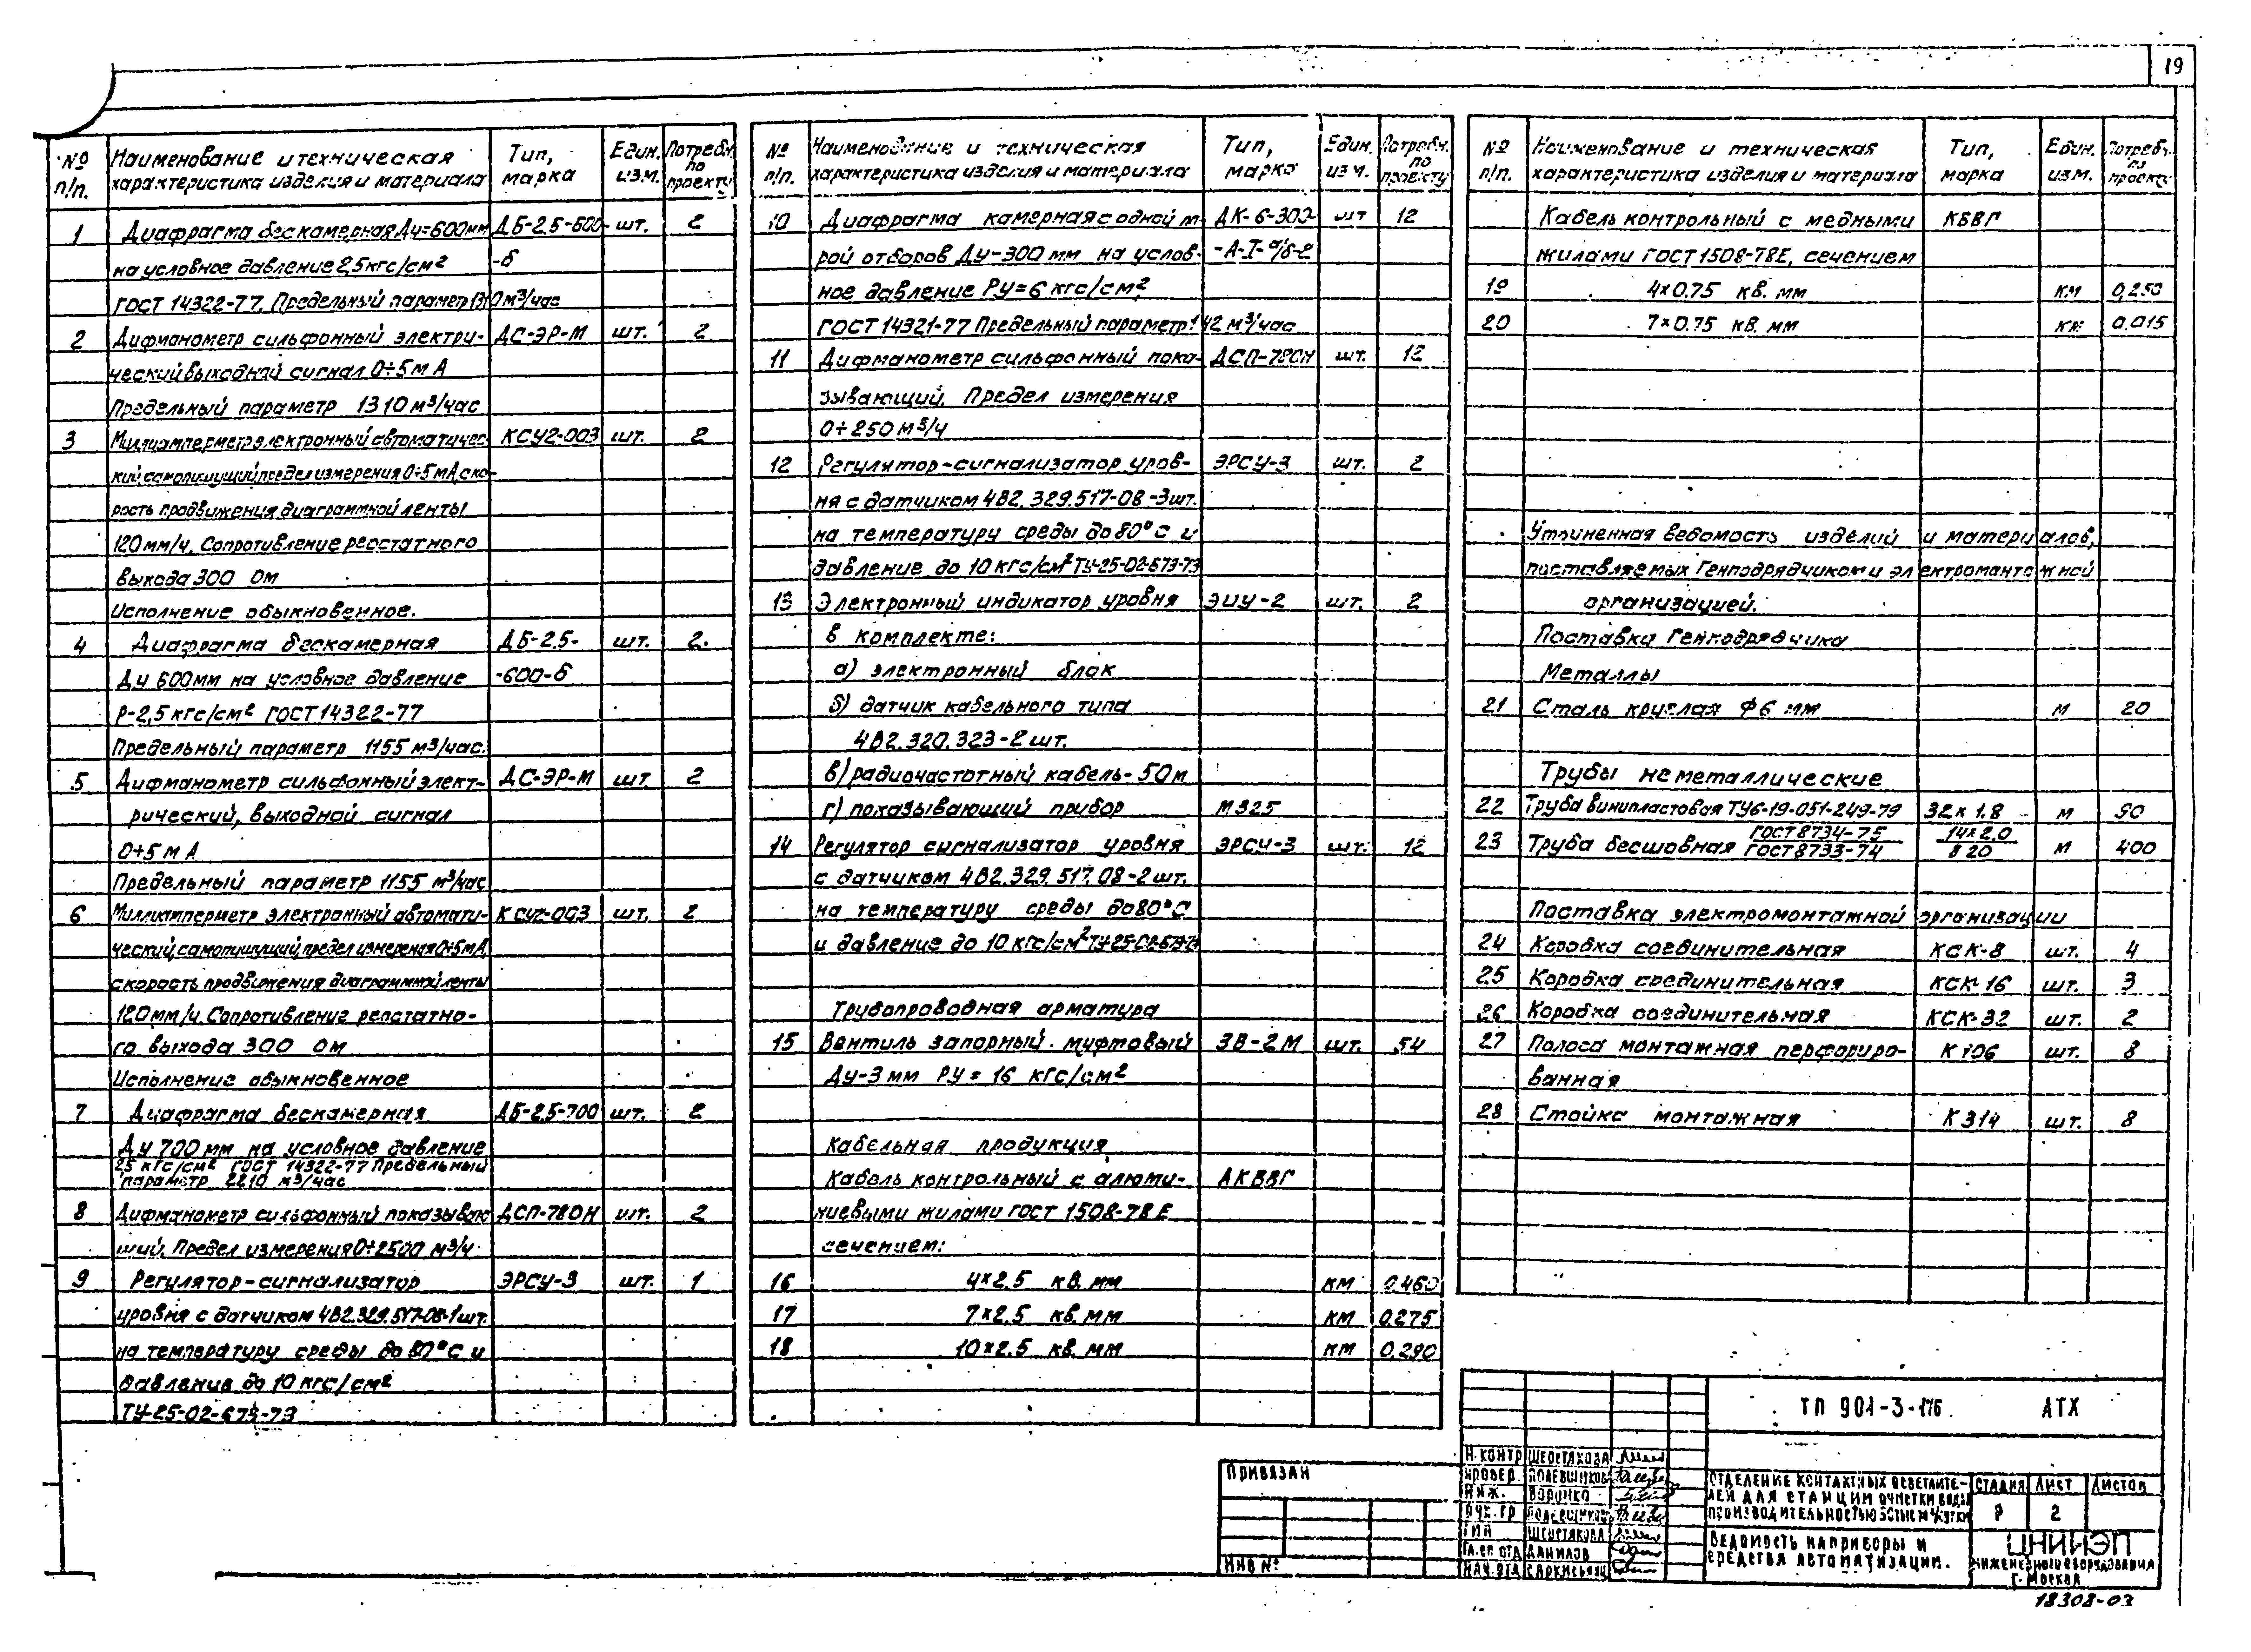 19
№ п/п. Наименование и техническая характеристика изделия и материала Тип, марка Един. изм. Потребн. по проекту
1 Диафрагма бескамерная Ду=600мм ДБ-2,5-600- шт. 2
на условное давление 2,5кгс/см² -б
ГОСТ 14322-77. Предельный параметр 1310м³/час
2 Дифманометр сильфонный электри- ДС-ЭР-М шт. 2
ческий выходной сигнал 0÷5мА
Предельный параметр 1310м³/час
3 Миллиамперметр электронный автоматичес- КСУ2-003 шт. 2
кий самопишущий, предел измерения 0÷5мА, ско-
рость продвижения диаграммной ленты
120мм/ч. Сопротивление реостатного
выхода 300 Ом
Исполнение обыкновенное.
4 Диафрагма бескамерная ДБ-2,5- шт. 2.
Ду 600мм на условное давление -600-б
Р-2,5кгс/см² ГОСТ 14322-77
Предельный параметр 1155 м³/час.
5 Дифманометр сильфонный элект- ДС-ЭР-М шт. 2
рический, выходной сигнал
0÷5мА
Предельный параметр 1155 м³/час
6 Миллиамперметр электронный автомати- КСУ2-003 шт. 2
ческий, самопишущий, предел измерения 0÷5мА,
скорость продвижения диаграммной ленты
120мм/ч. Сопротивление реостатно-
го выхода 300 Ом
Исполнение обыкновенное
7 Диафрагма бескамерная ДБ-2,5-700 шт. 2
Ду 700мм на условное давление
2,5 кгс/см² ГОСТ 14322-77 Предельный
параметр 2210 м³/час
8 Дифманометр сильфонный показываю ДСП-780Н шт. 2
щий. Предел измерения 0÷2500 м³/ч
9 Регулятор-сигнализатор ЭРСУ-3 шт. 1
уровня с датчиком 4В2.329.517-08-1шт.
на температуру среды до 80°С и
давление до 10 кгс/см²
ТУ-25-02-673-73
№ п/п. Наименование и техническая характеристика изделия и материала Тип, марка Един. изм. Потребн. по проекту
10 Диафрагма камерная с одной па- ДК-6-300- шт 12
рой отборов Ду-300мм на услов- -А-I-а/б-2
ное давление Ру=6кгс/см²
ГОСТ 14321-77 Предельный параметр 142 м³/час
11 Дифманометр сильфонный пока- ДСП-780Н шт. 12
зывающий. Предел измерения
0÷250м³/ч
12 Регулятор-сигнализатор уров- ЭРСУ-3 шт. 2
ня с датчиком 4В2.329.517-08-3шт.
на температуру среды до 80°С и
давление до 10кгс/см² ТУ-25-02-673-73
13 Электронный индикатор уровня ЭИУ-2 шт. 2
в комплекте:
а) электронный блок
б) датчик кабельного типа
4В2.320.323-2шт.
в) радиочастотный кабель-50м
г) показывающий прибор М325
14 Регулятор сигнализатор уровня ЭРСУ-3 шт. 12
с датчиком 4В2.329.517.08-2шт.
на температуру среды до 80°С
и давление до 10кгс/см² ТУ-25-02-673-73
Трубопроводная арматура
15 Вентиль запорный муфтовый 3В-2М шт. 54
Ду-3мм РУ=16 кгс/см²
Кабельная продукция
Кабель контрольный с алюми- АКВВГ
ниевыми жилами ГОСТ 1508-78Е
сечением:
16 4×2,5 кв. мм км 0,460
17 7×2,5 кв. мм км 0,275
18 10×2,5 кв. мм км 0,290
№ п/п. Наименование и техническая характеристика изделия и материала Тип, марка Един. изм. Потребн. по проекту
Кабель контрольный с медными КВВГ
жилами ГОСТ 1508-78Е, сечением
19 4×0.75 кв. мм км 0,250
20 7×0.75 кв. мм км 0,015
Уточненная ведомость изделий и материалов,
поставляемых Генподрядчиком и электромонтажной
организацией.
Поставка Генподрядчика
Металлы
21 Сталь круглая Ф6 мм м 20
Трубы неметаллические
22 Труба винипластовая ТУ6-19-051-249-79 32×1.8 м 90
23 Труба бесшовная ГОСТ 8734-75 / ГОСТ 8733-74 14×2,0 / В 20 м 400
Поставка электромонтажной организации
24 Коробка соединительная КСК-8 шт. 4
25 Коробка соединительная КСК-16 шт. 3
26 Коробка соединительная КСК-32 шт. 2
27 Полоса монтажная перфориро- К106 шт. 8
ванная
28 Стойка монтажная К314 шт. 8
ТП 901-3-176 АТХ
Привязан
Инв №:
Н.контр Шерстякова
Провер. Полевщикова
Инж.
Рук.гр Полевщикова
ГИП Шерстякова
Гл.сп.отд Данилов
Нач.отд
Отделение контактных осветлите-
лей для станции очистки воды
производительностью
Стадия Лист Листов
Р 2
Ведомость на приборы и
средства автоматизации.
ЦНИИЭП
инженерного оборудования
г. Москва
18308-03